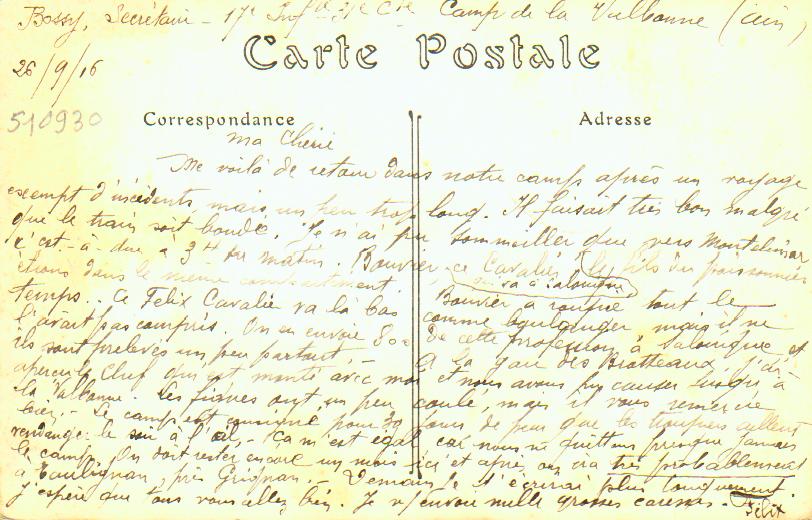 Bossy, Secrétaire - 17e Inf. 31e Cie Camp de la Valbonne (ain)
26/9/16
Carte Postale
510930
Correspondance
Adresse
ma Chérie
Me voilà de retour dans notre camp après un voyage
exempt d'incidents mais un peu trop long. Il faisait très bon malgré
que le train soit bondé. Je n'ai pu sommeiller que vers Montélimar
c'est-à-dire à 3h du matin. Bouvier, ce Cavalié, le fils du poissonnier
étions dans le même compartiment. va à Salonique
Bouvier a ronflé tout le
temps. Ce Félix Cavalié va là bas comme boulanger mais il ne
l'avait pas compris. On en envoie 800 de cette profession à Salonique et
ils sont prelevés un peu partout. - A la gare des Brotteaux, j'ai
aperçu Cluf qui est monté avec moi et nous avons pu causer jusqu'à
la Valbonne. Les figues ont un peu coulé, mais il vous remercie
bien. - Le camp est consigné pour 30 jours de peur que les troupiers aillent
vendanger le soir à l'œil. Ça m'est égal car nous ne quittons presque jamais
le camp. On doit rester encore un mois ici et après on ira très probablement
à Taulignan, près Grignan. - Demain je t'écrirai plus longuement.
J'espère que tous vous allez bien. Je v/envoie mille grosses caresses. Félix